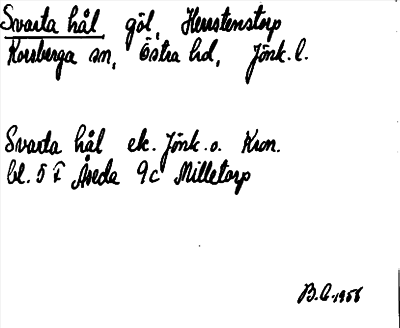 Svarta hål göl, Herrstenstorp
Korsberga sn, Östra hd, Jönk. l.
Svarta hål ek. Jönk. o. Kron.
bl. 5 F Åseda 9c Milletorp
B.A. 1956